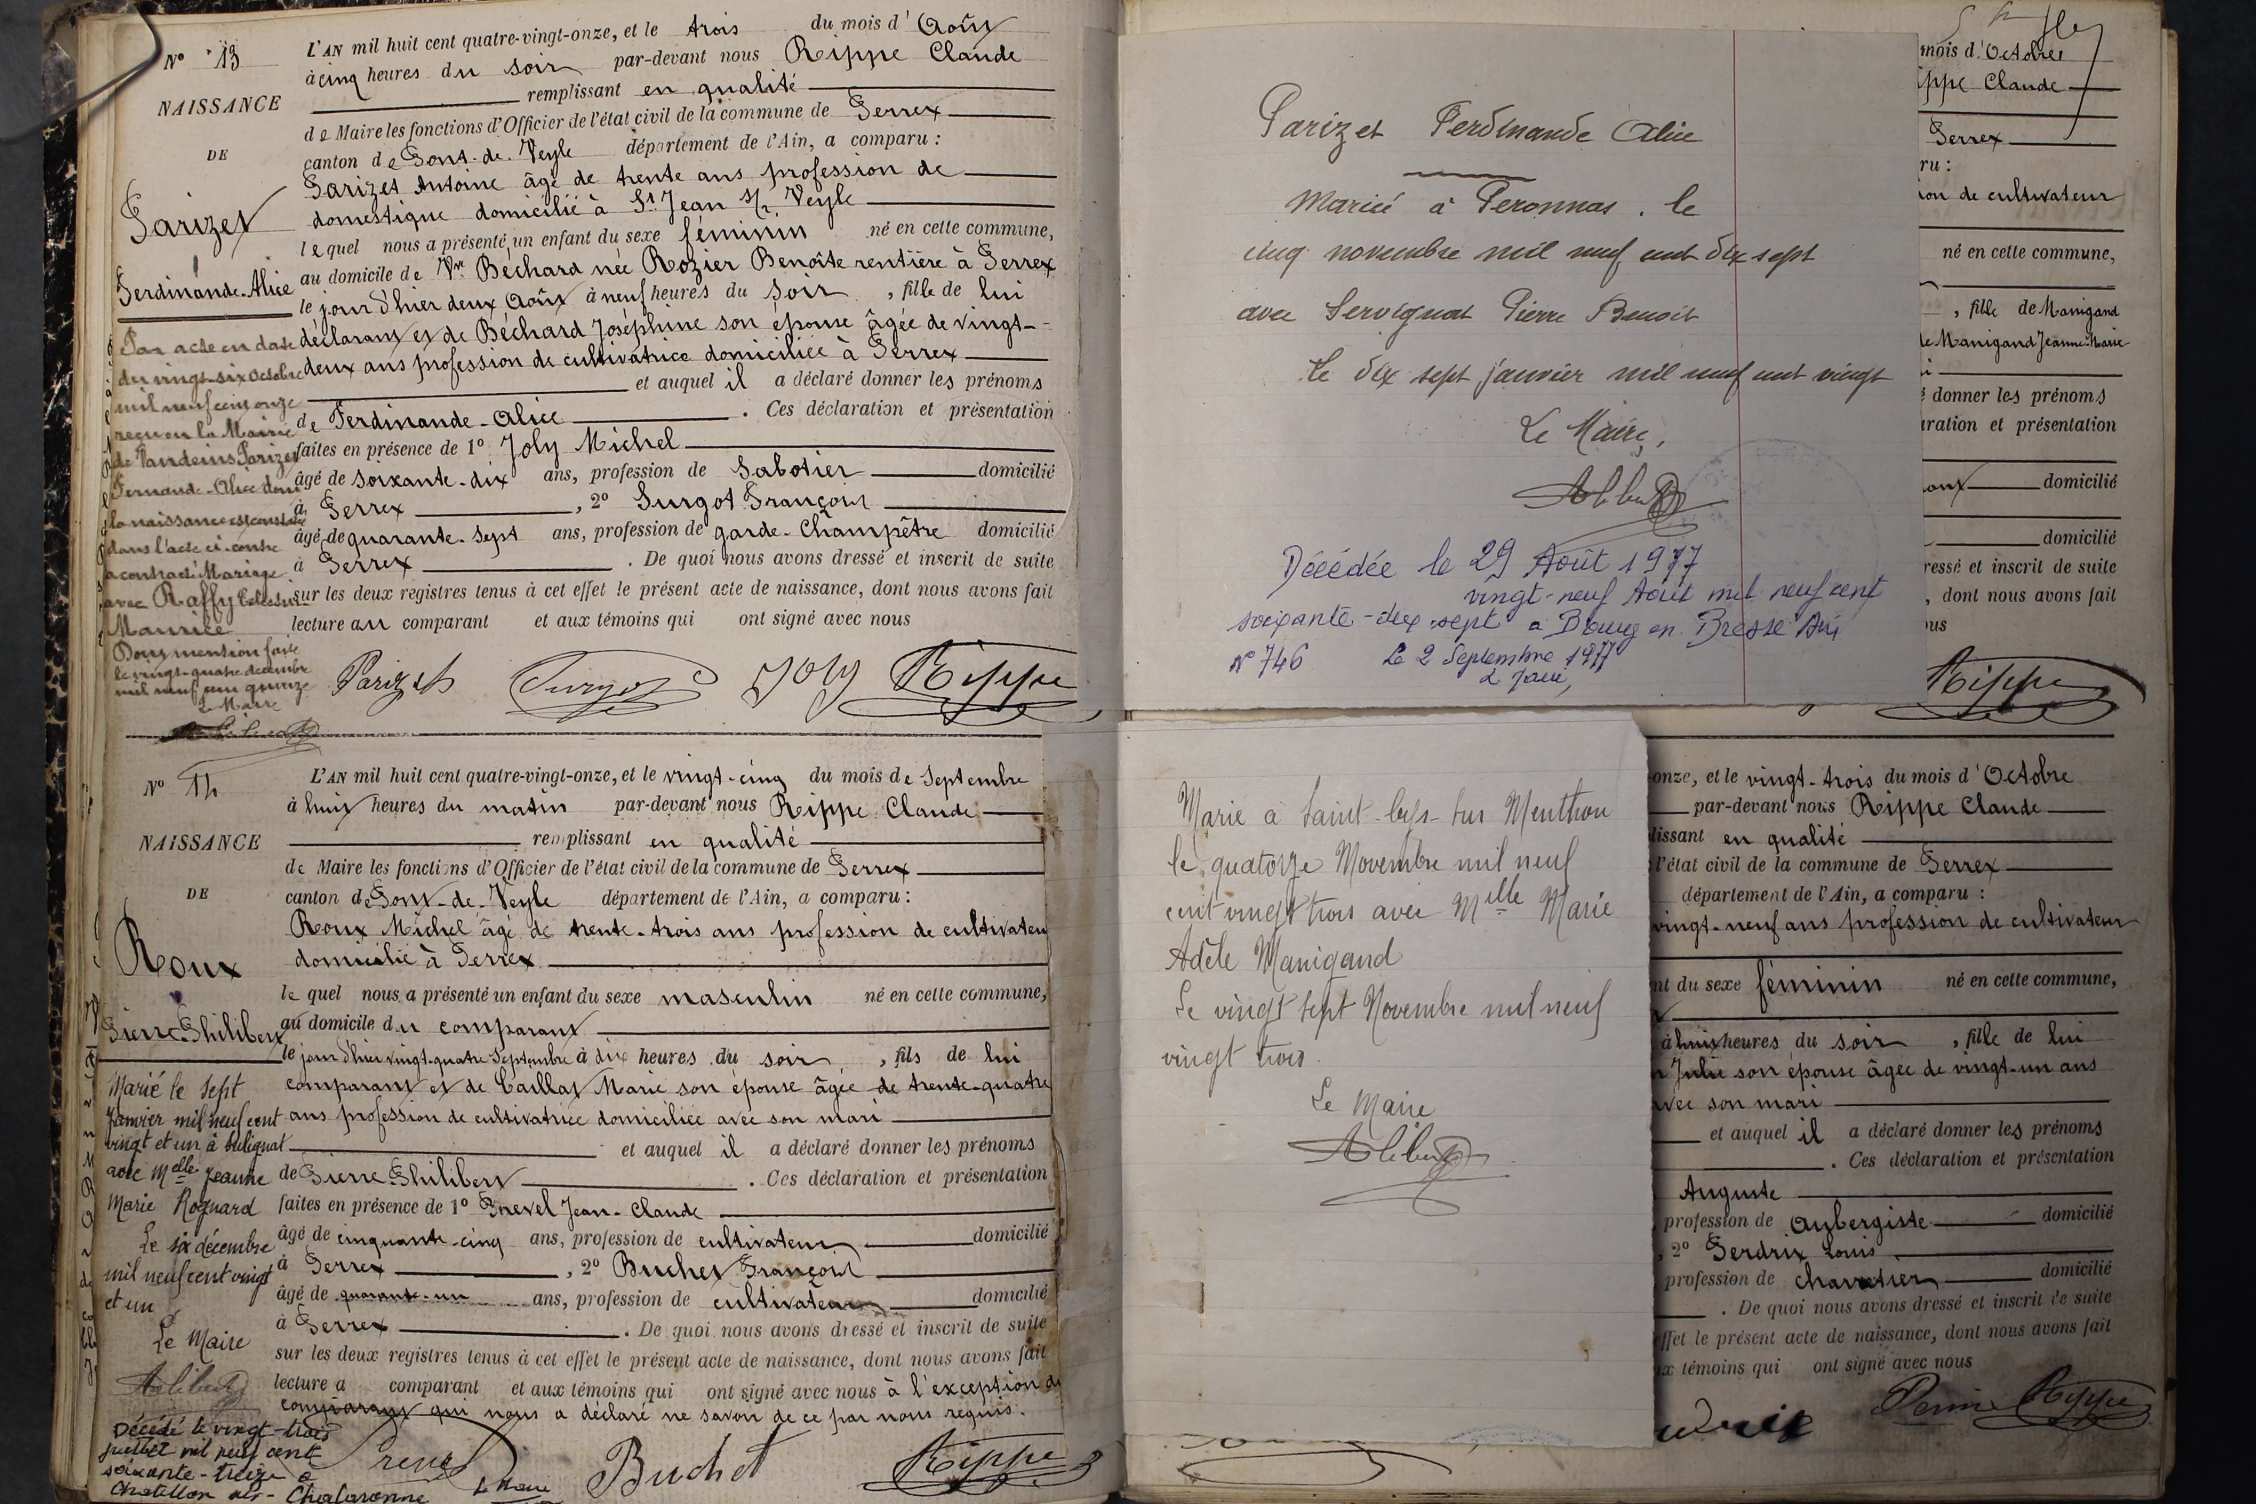 N° 13
NAISSANCE
DE
Parizet
Ferdinande-Alice
L'AN mil huit cent quatre-vingt-onze, et le trois du mois d'Août
à cinq heures du soir par-devant nous Rippe Claude
remplissant en qualité
de Maire les fonctions d'Officier de l'état civil de la commune de Perrex
canton de Pont-de-Veyle département de l'Ain, a comparu :
Parizet Antoine âgé de trente ans profession de
domestique domicilié à St Jean s/ Veyle
lequel nous a présenté un enfant du sexe féminin né en cette commune,
au domicile de Vve Béchard née Rozier Benoîte rentière à Perrex
le jour d'hier deux Août à neuf heures du soir, fille de lui
déclarant et de Béchard Joséphine son épouse âgée de vingt-
deux ans profession de cultivatrice domiciliée à Perrex
et auquel il a déclaré donner les prénoms
de Ferdinande-Alice. Ces déclaration et présentation
faites en présence de 1° Joly Michel
âgé de soixante-dix ans, profession de Sabotier domicilié
à Perrex, 2° Surgot François
âgé de quarante-sept ans, profession de garde-Champêtre domicilié
à Perrex. De quoi nous avons dressé et inscrit de suite
sur les deux registres tenus à cet effet le présent acte de naissance, dont nous avons fait
lecture au comparant et aux témoins qui ont signé avec nous
Parizet Surgot Joly Rippe
Par acte en date
du vingt-six Octobre
mil neuf cent onze
reçu en la Mairie
de Vandeins Parizet
Fernande-Alice dont
la naissance est constatée
dans l'acte ci-contre
a contracté Mariage
avec Raffy Célestin
Maurice
Dont mention faite
le vingt-quatre décembre
mil neuf cent quinze
Le Maire
N° 14
NAISSANCE
DE
Roux
Pierre-Philibert
L'AN mil huit cent quatre-vingt-onze, et le vingt-cinq du mois de Septembre
à huit heures du matin par-devant nous Rippe Claude
remplissant en qualité
de Maire les fonctions d'Officier de l'état civil de la commune de Perrex
canton de Pont-de-Veyle département de l'Ain, a comparu :
Roux Michel âgé de trente-trois ans profession de cultivateur
domicilié à Perrex
lequel nous a présenté un enfant du sexe masculin né en cette commune,
au domicile du comparant
le jour d'hier vingt-quatre Septembre à dix heures du soir, fils de lui
comparant et de Caillat Marie son épouse âgée de trente-quatre
ans profession de cultivatrice domiciliée avec son mari
et auquel il a déclaré donner les prénoms
de Pierre Philibert. Ces déclaration et présentation
faites en présence de 1° Prevel Jean-Claude
âgé de cinquante-cinq ans, profession de cultivateur domicilié
à Perrex, 2° Buchet François
âgé de quarante-un ans, profession de cultivateur domicilié
à Perrex. De quoi nous avons dressé et inscrit de suite
sur les deux registres tenus à cet effet le présent acte de naissance, dont nous avons fait
lecture a comparant et aux témoins qui ont signé avec nous à l'exception du
comparant qui nous a déclaré ne savoir de ce par nous requis.
Prevel Buchet Rippe
Marié le sept
Janvier mil neuf cent
vingt et un à Sulignat
avec Melle Jeanne
Marie Roguard
Le six décembre
mil neuf cent vingt
et un
Le Maire
Décédé le vingt-trois
juillet mil neuf cent
soixante-treize à
Chatillon sur-Chalaronne Le Maire
Parizet Ferdinande Alice
Mariée à Peronnas. le
cinq novembre mil neuf cent dix sept
avec Servignat Pierre Benoit
le dix sept janvier mil neuf cent vingt
Le Maire,
Décédée le 29 Août 1977
vingt-neuf Août mil neuf cent
soixante-dix-sept à Bourg en Bresse Ain
N° 746 Le 2 Septembre 1977
Marié à Saint-Cyr-sur Menthon
le quatorze Novembre mil neuf
cent vingt trois avec Melle Marie
Adèle Manigand
Le vingt sept Novembre mil neuf
vingt trois.
Le Maire
mois d'Octobre
Rippe Claude
Perrex
ru :
ion de cultivateur
né en cette commune,
, fille de Manigand
de Manigand Jeanne-Marie
donner les prénoms
ration et présentation
domicilié
domicilié
ressé et inscrit de suite
, dont nous avons fait
us
Rippe
onze, et le vingt-trois du mois d'Octobre
par-devant nous Rippe Claude
lissant en qualité
l'état civil de la commune de Perrex
département de l'Ain, a comparu :
vingt-neuf ans profession de cultivateur
nt du sexe féminin né en cette commune,
à huit heures du soir, fille de lui
Julie son épouse âgée de vingt-un ans
avec son mari
et auquel il a déclaré donner les prénoms
. Ces déclaration et présentation
Auguste
profession de Aubergiste domicilié
, 2° Perdrix Louis
profession de charretier domicilié
. De quoi nous avons dressé et inscrit de suite
effet le présent acte de naissance, dont nous avons fait
ux témoins qui ont signé avec nous
Rippe